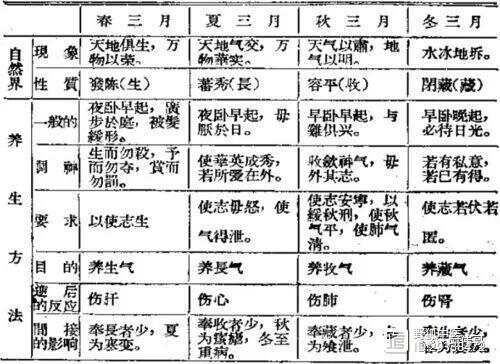 春三月
夏三月
秋三月
冬三月
自然界
現象
天地俱生，万
物以荣。
天地气交，万
物華实。
天气以肅，地
气以明。
水冰地拆。
性質
發陈(生)
蕃秀(長)
容平(收)
閉藏(藏)
养生方法
一般的
夜卧早起，廣
步於庭，被髮
緩形。
夜卧早起，毋
厭於日。
早卧早起，与
雞俱兴。
早卧晚起，
必待日光。
調神
生而勿殺，予
而勿夺，賞而
勿罰。
使華英成秀，
若所愛在外。
收斂神气，毋
外其志。
若有私意，
若已有得。
要求
以使志生
使志毋怒，使
气得泄。
使志安寧，以
緩秋刑，使秋
气平，使肺气
清。
使志若伏若
匿。
目的
养生气
养長气
养收气
养藏气
逆后
的反应
伤肝
伤心
伤肺
伤腎
間接
的影响
奉長者少，夏
为寒变。
奉收者少，秋
为痎瘧，冬至
重病。
奉藏者少，
为飧泄。
者少，